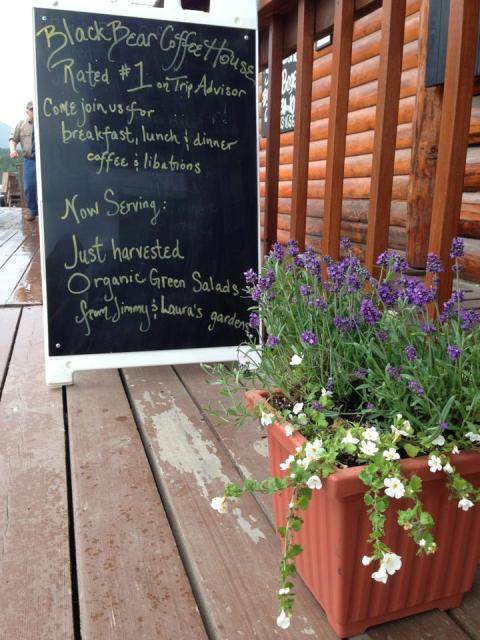 Black Bear Coffee House
Rated #1 on Trip Advisor
Come join us for
breakfast, lunch & dinner
coffee & libations
Now Serving:
Just harvested
Organic Green Salads
from Jimmy & Laura's gardens